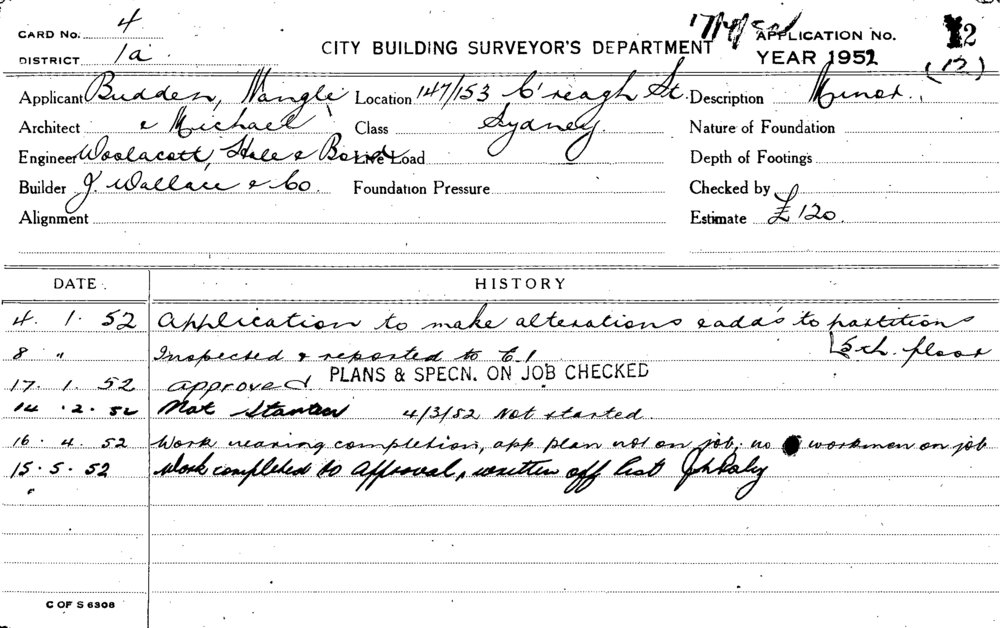 CARD No. 4
DISTRICT 1a
CITY BUILDING SURVEYOR'S DEPARTMENT
APPLICATION No. 12
YEAR 1952 (12)
Applicant Budden, Nangle Location 147/153 C'reagh St. Description Minor.
Architect & Michael Class Sydney. Nature of Foundation
Engineer Woolacott, Hale & Bond Live Load Depth of Footings
Builder J. Wallace & Co. Foundation Pressure Checked by
Alignment Estimate £120.
DATE HISTORY
4. 1. 52 Application to make alterations & add's to partitions
5th. floor
8 " Inspected & reported to C.I
PLANS & SPECN. ON JOB CHECKED
17. 1. 52 approved
14. 2. 52 Not Started 4/3/52 Not started.
16. 4. 52 Work nearing completion, app plan not on job, no workmen on job
15. 5. 52 Work completed to approval, written off list
C OF S 6308